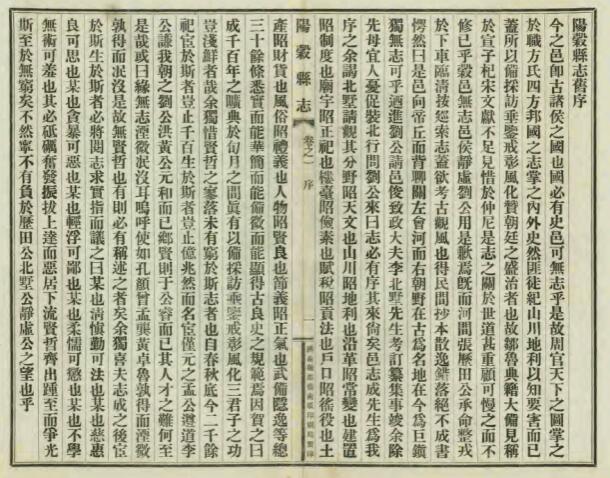 陽穀縣志舊序
今之邑卽古諸侯之國也國必有史邑可無志乎是故周官天下之圖掌之
於職方氏四方邦國之志掌之內外史然匪徒紀山川地利以知要害而已
蓋所以備採訪垂鑒戒彰風化贊朝廷之盛治者也故鄒魯典籍大備見稱
於宣子杞宋文獻不足見惜於仲尼是志之關於世道甚重顧可慢之而不
修已乎穀邑無志邑侯靜虛劉公用是歉焉旣而河間張歷田公承命整戎
於下車臨淸按巡索志蓋欲考古觀風也得民間抄本散逸錯落絕不成書
愕然曰是邑向帝丘而背聊關左會河而右朝野在古爲名地在今爲巨鎭
獨無志可乎迺進劉公請邑俊致政大夫李北墅先生考訂纂集事竣余除
先母宜人憂促裝北行問劉公來曰志必有序其來尙矣邑志成先生爲我
序之余謁北墅請觀其分野昭天文也山川昭地利也沿革昭常變也建置
昭制度也廟宇昭正祀也樓臺昭儉素也賦稅昭貢法也戶口昭徭役也土
陽穀縣志
卷之一
序
一
產昭財貨也風俗昭禮義也人物昭賢良也節義昭正氣也武備隱逸等總
三十餘條悉實而能華簡而能備微而能顯得古良史之規範焉因賀之曰
成千百年之曠典於旬月之間眞有以備採訪垂鑒戒彰風化三君子之功
豈淺鮮者哉余獨惜賢哲之寥落未有窮於斯志者也自春秋底今二千餘
祀宦於斯者豈止千百生於斯者豈止億兆然而名宦僅元之孟公遵道李
公謙我朝之劉公洪黃公元和而已鄉賢則于公睿而已其人才之難何至
是哉或曰緣無志湮微泯沒耳嗚呼使如孔顏曾孟龔黃卓魯孰得而湮微
孰得而泯沒是故無賢哲也有則必有稱述之者矣余獨喜夫志成之後宦
於斯生於斯者必將閱志求實指而議之曰某也淸愼勤可法也某也慈惠
良可思也某也貪暴可惡也某也輕浮可鄙也某也柔懦可懲也某也不學
無術可羞也其必砥礪奮發振拔上達而惡居下流賢哲齊出踵至而爭光
斯至於無窮矣不然寧不有負於歷田公北墅公靜虛公之望也乎